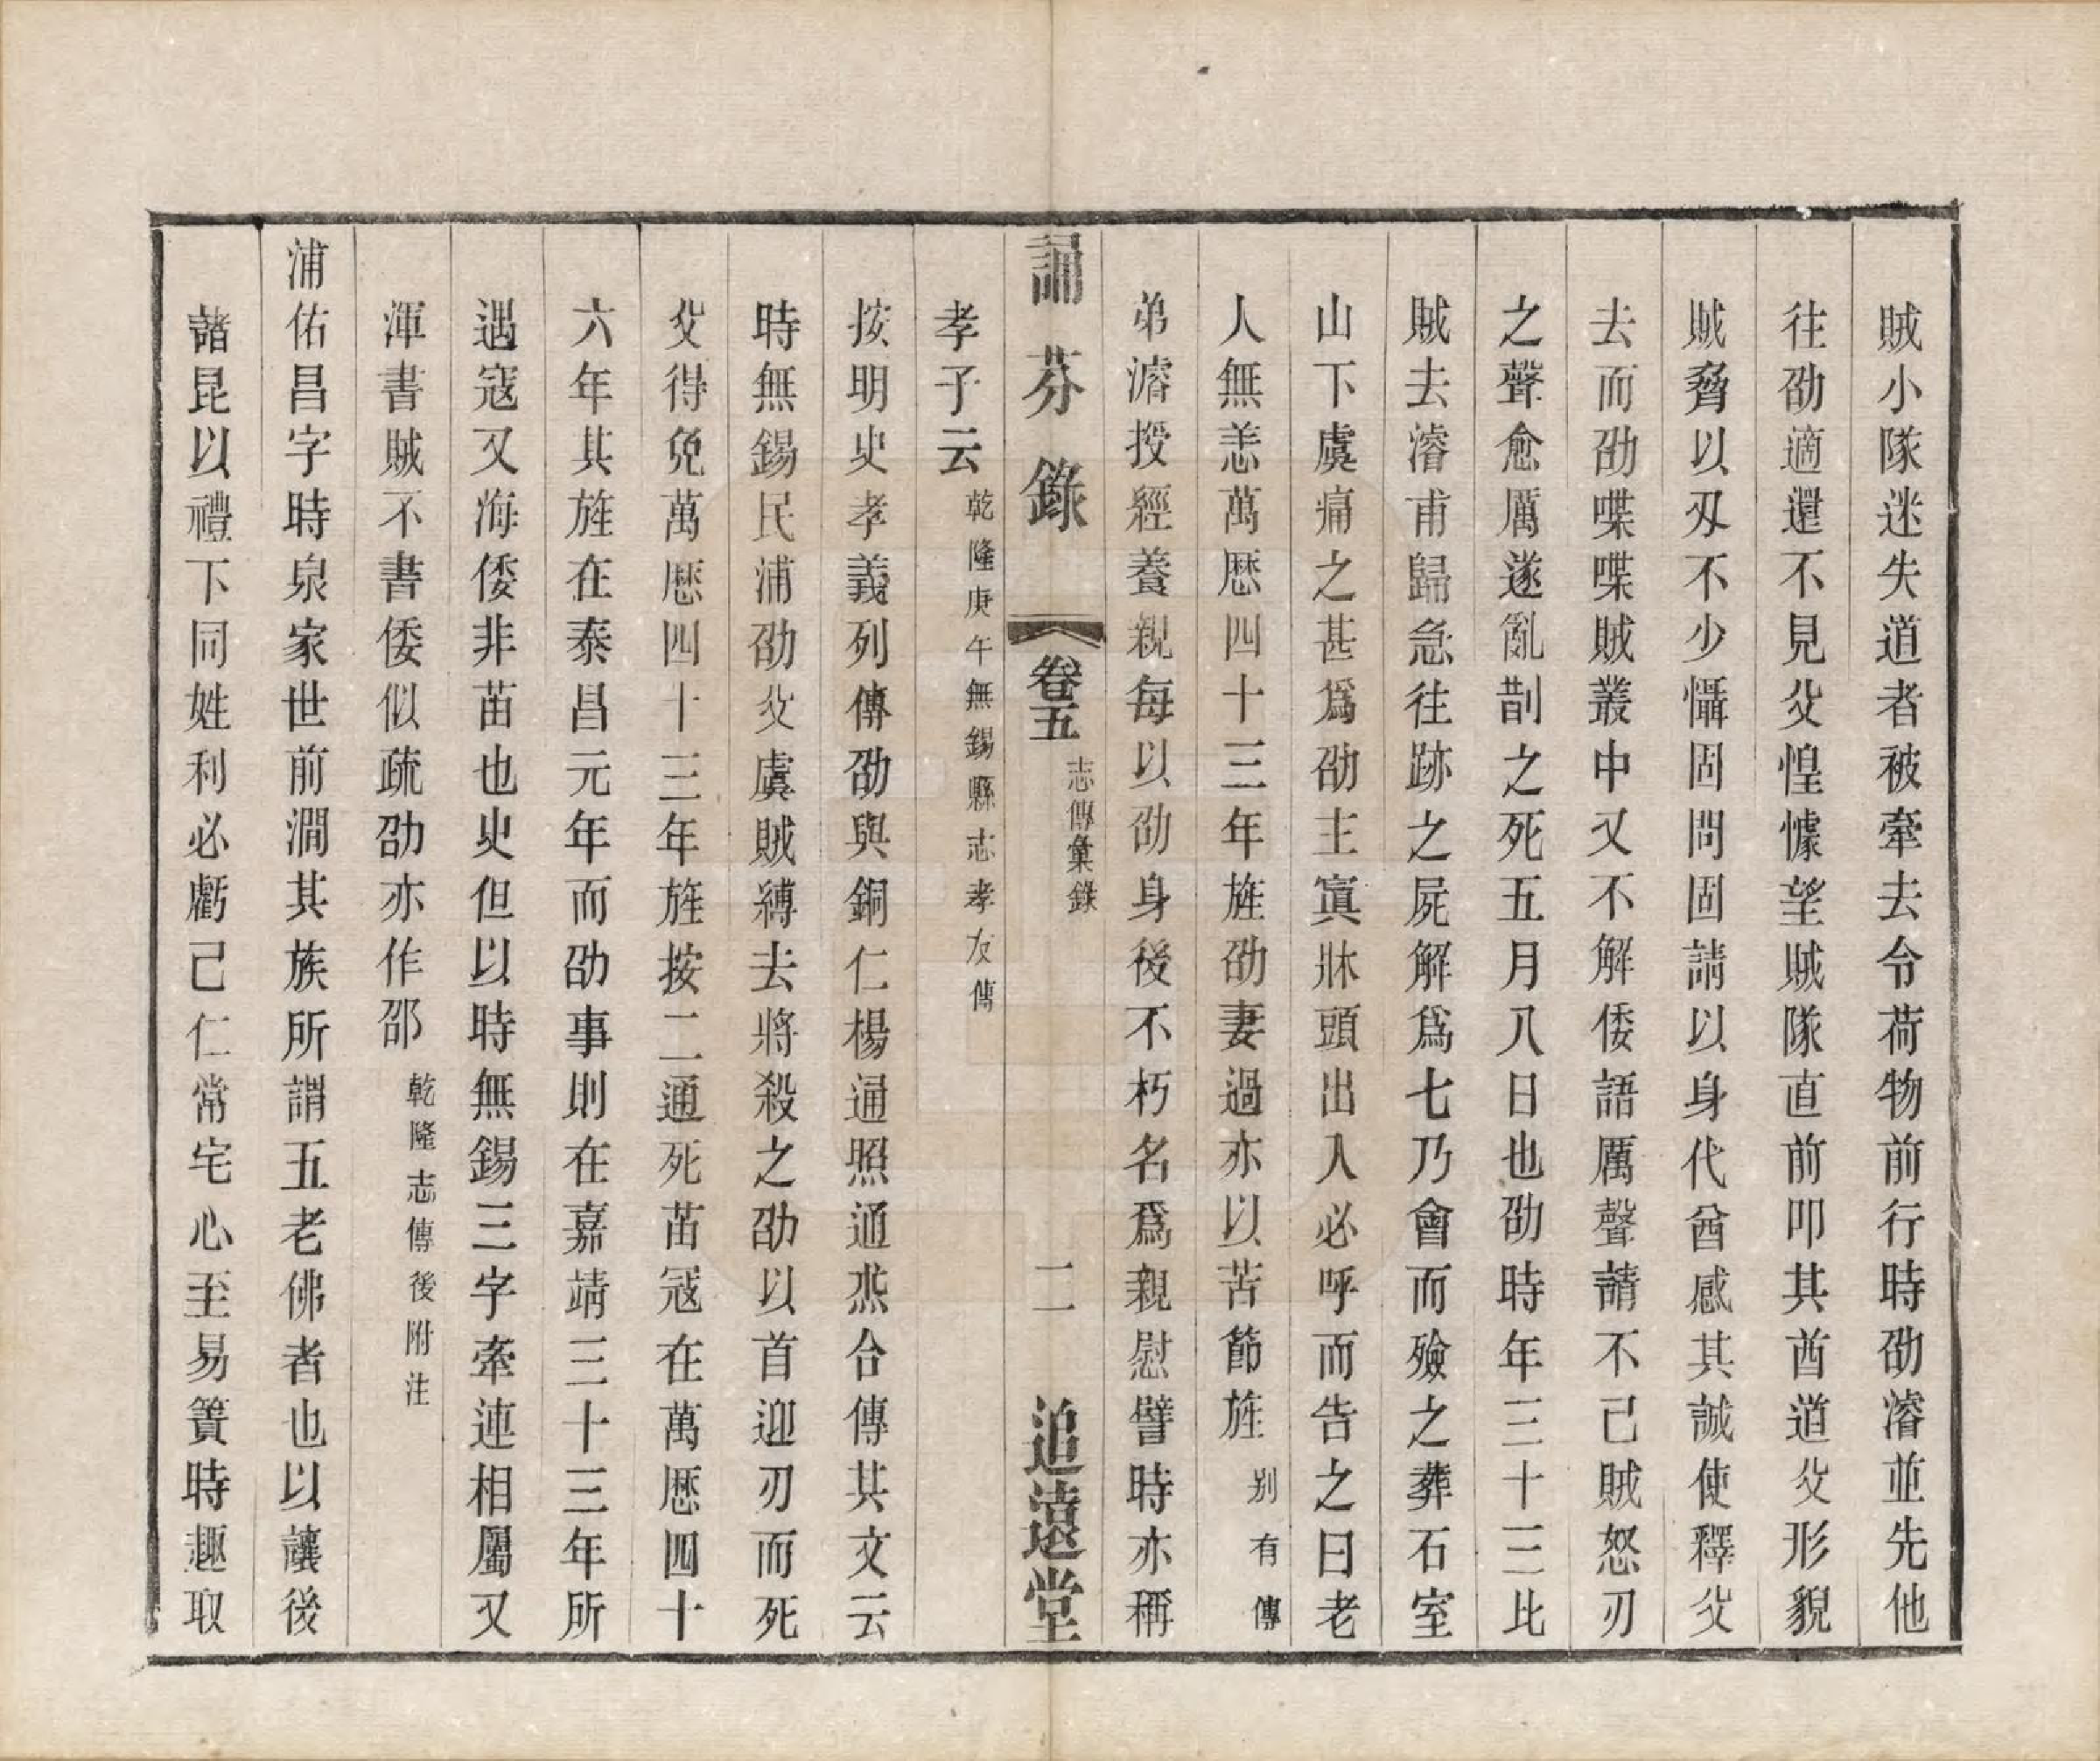 賊小隊迷失道者被牽去令荷物前行時劭濬並先他
往劭適還不見父惶懅望賊隊直前叩其酋道父形貌
賊脅以刃不少懾固問固請以身代酋感其誠使釋父
去而劭喋喋賊叢中又不解倭語厲聲請不已賊怒刃
之聲愈厲遂亂斮之死五月八日也劭時年三十三比
賊去濬甫歸急往跡之屍解爲七乃會而殮之葬石室
山下虞痛之甚爲劭主寘牀頭出入必呼而告之曰老
人無恙萬厯四十三年旌劭妻過亦以苦節旌別有傳
弟濬授經養親每以劭身後不朽名爲親慰譬時亦稱
誦芬錄 卷五 志傳彙錄 二 追遠堂
孝子云乾隆庚午無錫縣志孝友傳
按明史孝義列傳劭與銅仁楊通照通杰合傳其文云
時無錫民浦劭父虞賊縛去將殺之劭以首迎刃而死
父得免萬厯四十三年旌按二通死苗寇在萬厯四十
六年其旌在泰昌元年而劭事則在嘉靖三十三年所
遇寇又海倭非苗也史但以時無錫三字牽連相屬又
渾書賊不書倭似疏劭亦作邵乾隆志傳後附注
浦佑昌字時泉家世前澗其族所謂五老佛者也以讓後
諸昆以禮下同姓利必虧己仁常宅心至易簀時趣取